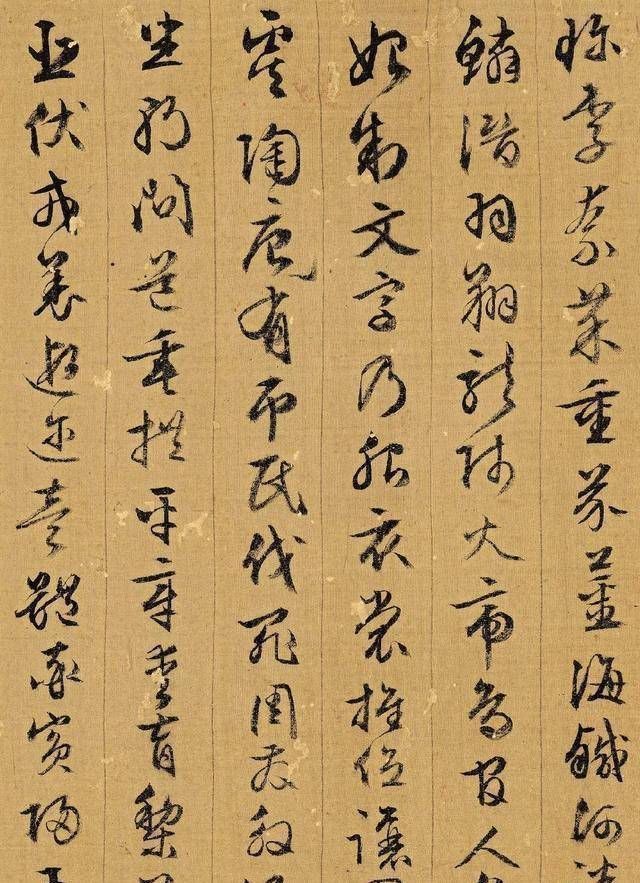 珍李柰菜重芥薑海鹹河淡
鱗潛羽翔龍師火帝鳥官人
始制文字乃服衣裳推位讓
虞陶唐有吊民伐罪周發殷
坐朝問道垂拱平章愛育黎
臣伏戎羌遐邇壹體率賓歸